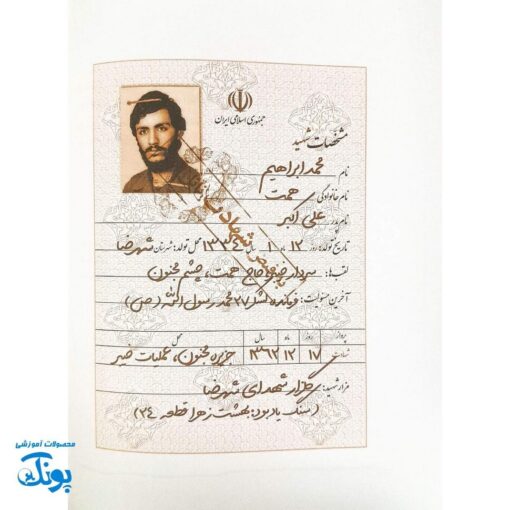 جمهوری اسلامی ایران
مشخصات شهید
نام محمد ابراهیم
نام خانوادگی همت
نام پدر علی اکبر
تاریخ تولد: روز ۱۲ ماه ۱ سال ۱۳۳۴ محل تولد: شهرستان شهرضا
لقب‌ها: سردار خیبر، حاج همت، چشم مجنون
آخرین مسئولیت: فرمانده لشکر ۲۷ محمد رسول الله (ص)
پرواز روز ماه سال محل
۱۷ ۱۲ ۱۳۶۲ جزیره مجنون، عملیات خیبر
مزار شهید: گلزار شهدای شهرضا
(سنگ یادبود: بهشت زهرا قطعه ۲۴)
محصولات آموزشی
پونک